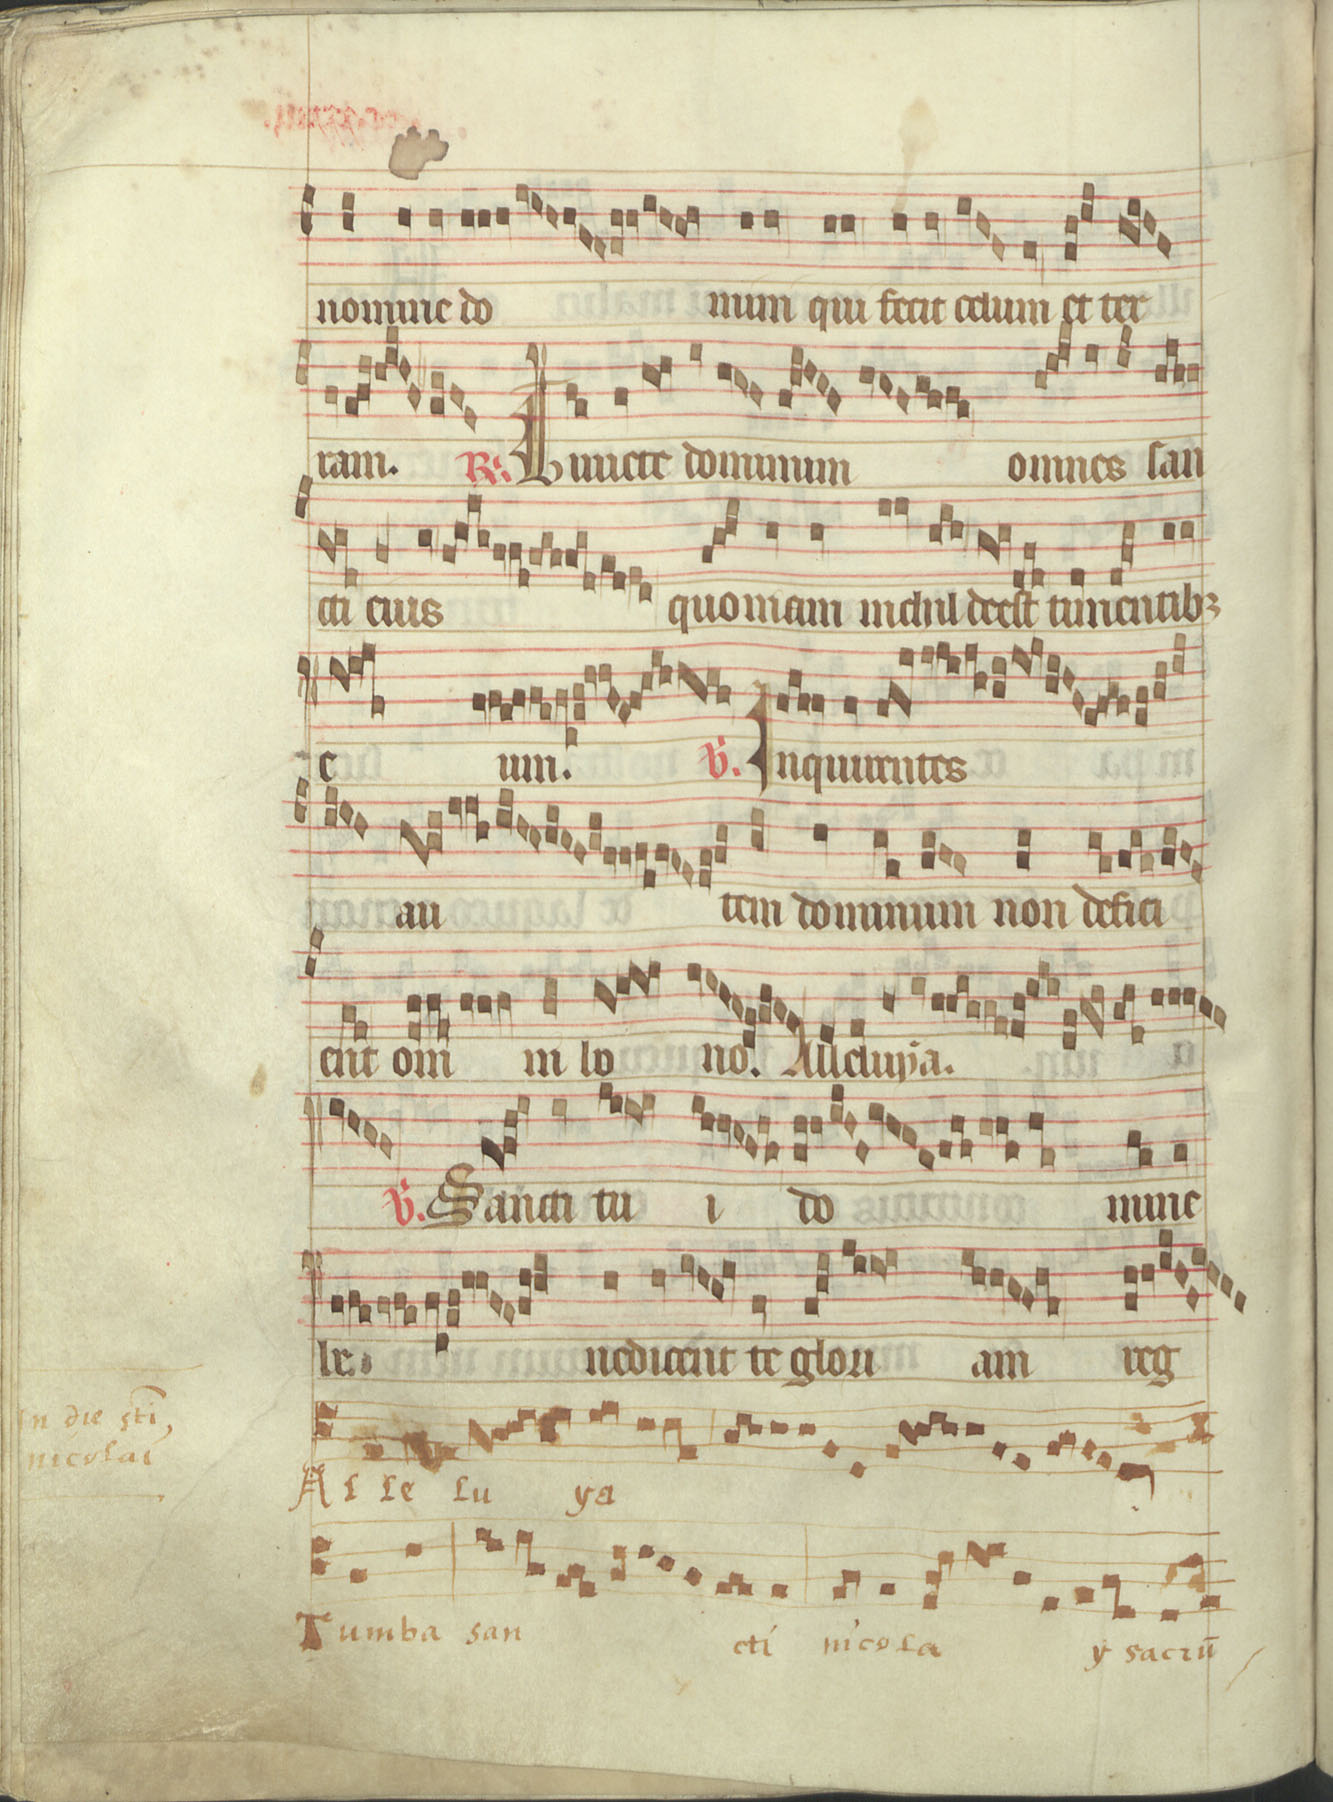 nomine do num qui fecit celum et ter
ram. R. Timete dominum omnes san
cti eius quoniam nichil deest timentibꝫ
e um. V. Inquirentes
au tem dominum non defici
ent om ni bo no. Alleluya.
V. Sancti tu i do mine
be nedicent te glori am reg
In die sti,
nicolai
Al le lu ya
Tumba san cti nicola y sacrū